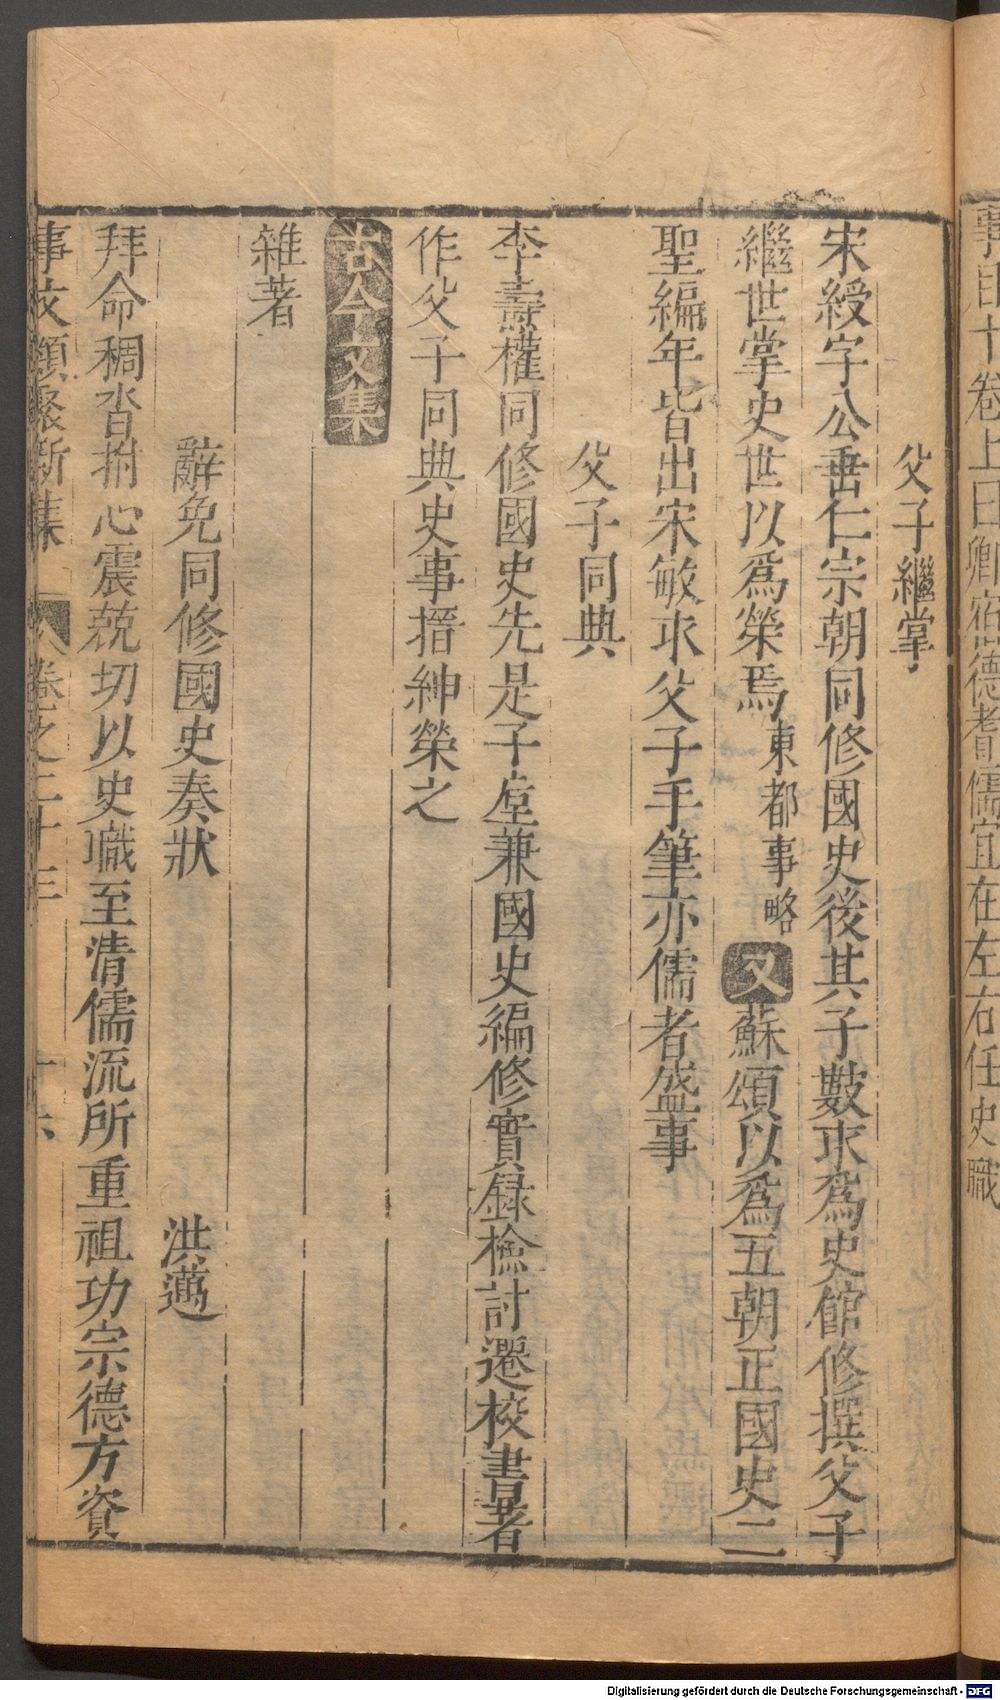 事 十卷上曰卿宿德耆儒宜在左右任史職
父子繼掌
宋綬字公垂仁宗朝同修國史後其子敏求爲史館修撰父子
繼世掌史世以爲榮焉東都事略又蘇頌以爲五朝正國史二
聖編年皆出宋敏求父子手筆亦儒者盛事
父子同典
李壽權同修國史先是子垕兼國史編修實錄檢討遷校書著
作父子同典史事搢紳榮之
古今文集
雜著
辭免同修國史奏狀 洪邁
拜命稠沓拊心震兢切以史職至清儒流所重祖功宗德方資
事文類聚新集 卷之二十三 十六
Digitalisierung gefördert durch die Deutsche Forschungsgemeinschaft - DFG